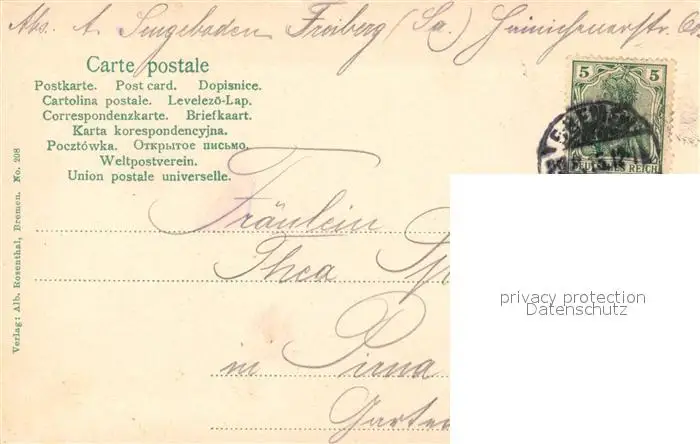 Abs. A. Sengebaden Freiberg (Sa.)
Carte postale
Postkarte. Post card. Dopisnice.
Cartolina postale. Levelező-Lap.
Correspondenzkarte. Briefkaart.
Karta korespondencyjna.
Pocztówka. Открытое письмо.
Weltpostverein.
Union postale universelle.
5 5
DEUTSCHES REICH
Verlag: Alb. Rosenthal, Bremen. No. 298
Fräulein
Thea
in Pirna
Garten
privacy protection
Datenschutz